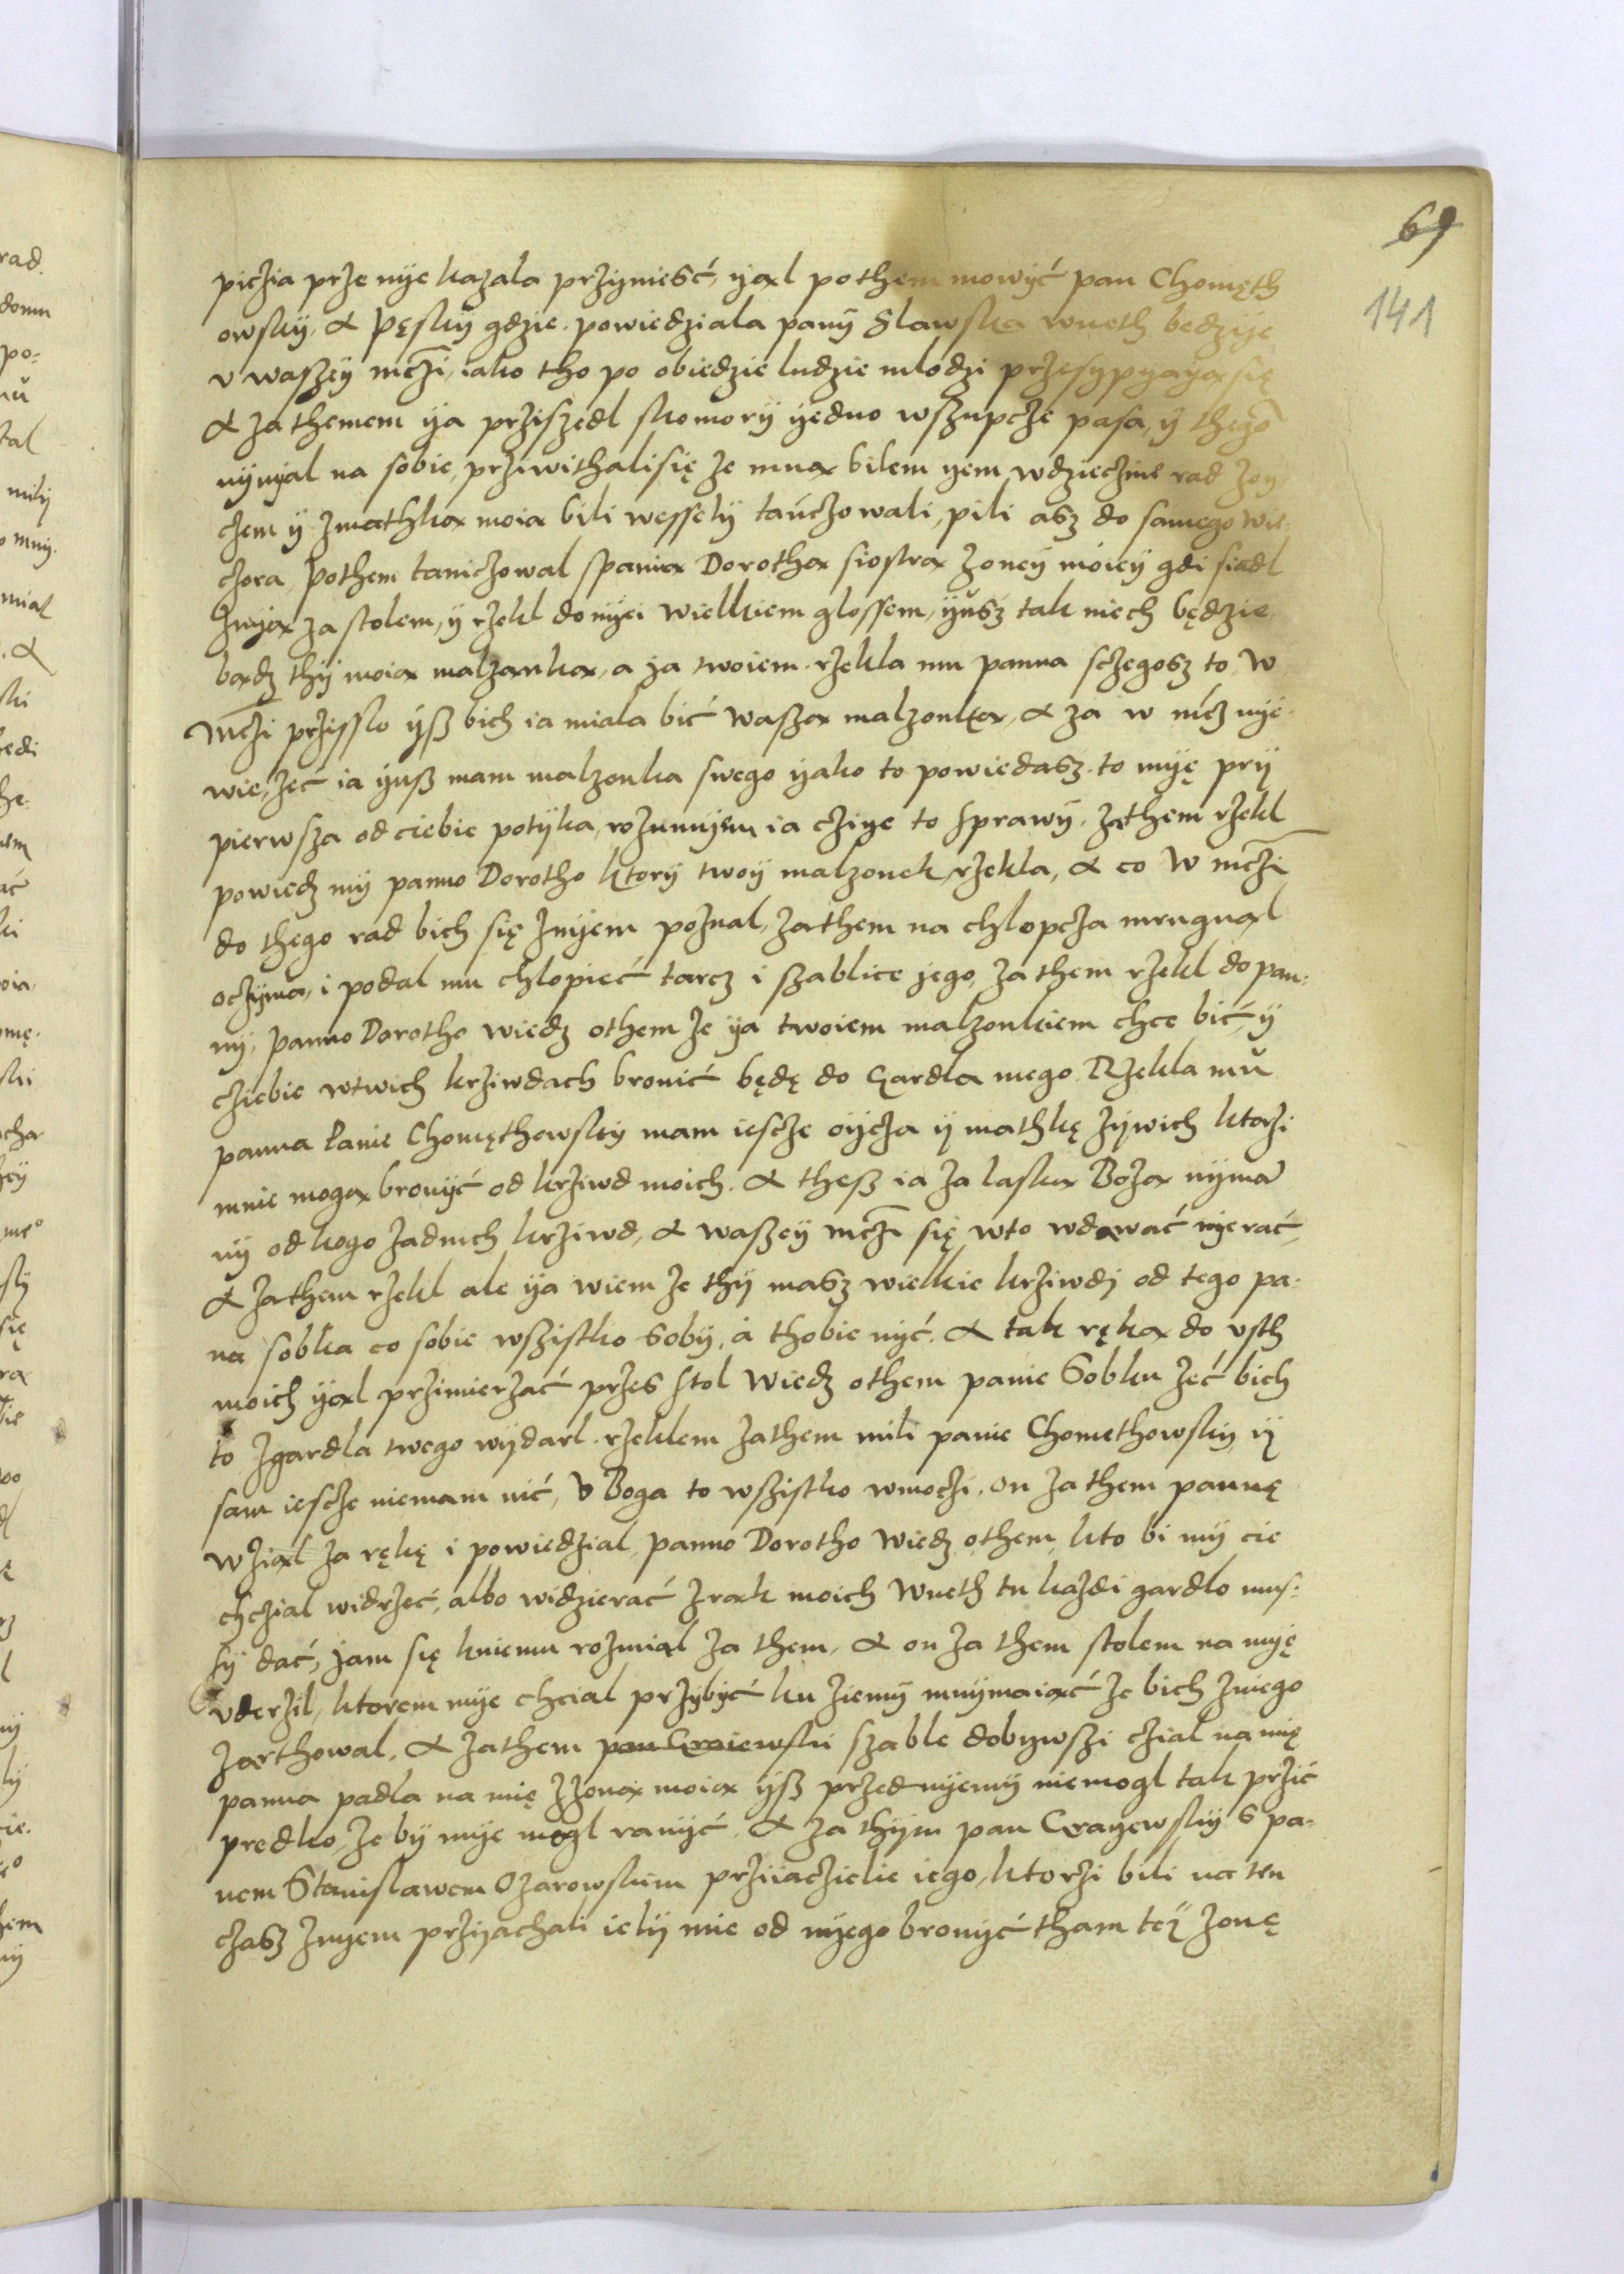 69
141
piczia prze nye kazala przyniesć, yąl pothem mowyć pan Chomęth
owsky, & Pęsky gdzie. powiedziala pany Slawska wneth bedzye
v waszey mczi, iako tho po obiedzie ludzie mlodzi przesypyayą się
& za themem ya przyszedl skomory yedno wszupcze pasa, y
nymyal na sobie, przywithali się ze mną bilem yem wdziecżine rad żoy
czem y zmathką moią bili wessely tańczowali, pili asz do samego wie:
czora, pothem taniczowal spanią Dorothą siostrą żoney moiey gdi siadl
znyą za stolem, y rzekl do nyei wielkiem glossem, yusz tak niech będzie.
bądz thy moią malzanką, a ja twoiem. rzekla mu panna sczegosz to, W
Mczi przisslo ysz bich ia miala bić waszą malzonką, & za w mcz nye
wie, żeć ia yusz mam malzonka swego yako to powiedasz. to myę pry
pierwsza od ciebie potyka, rozumyem ia czige to sprawy. Zathem rzekl
powiedz my panno Dorotho ktory twoy malzonek, rzekla, & co W mczi
do thego rad bich się znyem poznal, Zathem na chlopcza mrugnąl
oczyma, i podal mu chlopieć tarcz i szablice jego, Za them rzekl do pan:
ny, panno Dorotho wiedz othem że ya twoiem malzonkiem chce bić, y
cziebie wtwich krziwdach bronić będę do Gardla mego. Rzekla mu
panna Panie Chomęthowsky mam iescze oycza y mathkę żywich ktorzi
mnie mogą bronyć od krziwd moich. & thesz ia za laską Bożą nyma
ny od kogo żadnich krziwd, & waszey mczi się wto wdawać nie rać,
& Zathem rzekl ale ya wiem że thy masz wielkie krziwdi od tego pa:
na sobka co sobie wszistko soby, á thobie nyć. & tak ręką do vsth
moich yąl przimierzać przes stol Wiedz othem panie Sobku żeć bich
to zgardla twego wydarl. rzeklem Zathem mili panie Chomethowsky, y
sam iescze niemam nić, V Boga to wszistko wmoczi. on Za them pannę
wziąl za rękę i powiedzial, panno Dorotho Wiedz othem, kto bi my cie
chczial widrzeć, albo widzierać zrąk moich wneth tu każdi gardlo mus:
sy dać, jam się kniemu rozmial Za them, & on Za them stolem na myę
vderzil, ktorem mye chcial przybyć ku ziemy mnymaiąć że bich zniego
żarthowal, & Zathem pan Graiewski szable dobywszi cżial na mię
panna padla na mię zżoną moią ysz przed nyemy niemogl tak przić
predko, że by mye mogl ranyć. & Za thym pan Grayewsky s pa:
nem Stanislawem Ożarowskim prziiaczielie iego, ktorzi bili na ten
czasz znyem przyachali iely mie od nyego bronyć tham też żonę